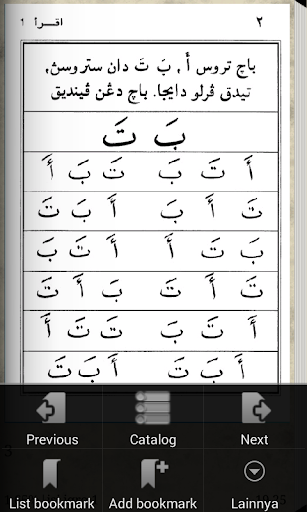 ٢ اقرأ ١
باچ تروس أَ , بَ تَ دان ستروسڽ
تيدق ڤرلو دايجا. باچ دڠن ڤينديق
بَ تَ
أَ تَ بَ تَ بَ أَ
تَ أَ بَ أَ بَ تَ
بَ تَ أَ أَ تَ بَ
تَ أَ تَ بَ أَ تَ
أَ تَ بَ تَ تَ أَ
أَ بَ تَ أَ بَ تَ
Previous Catalog Next
List bookmark Add bookmark Lainnya